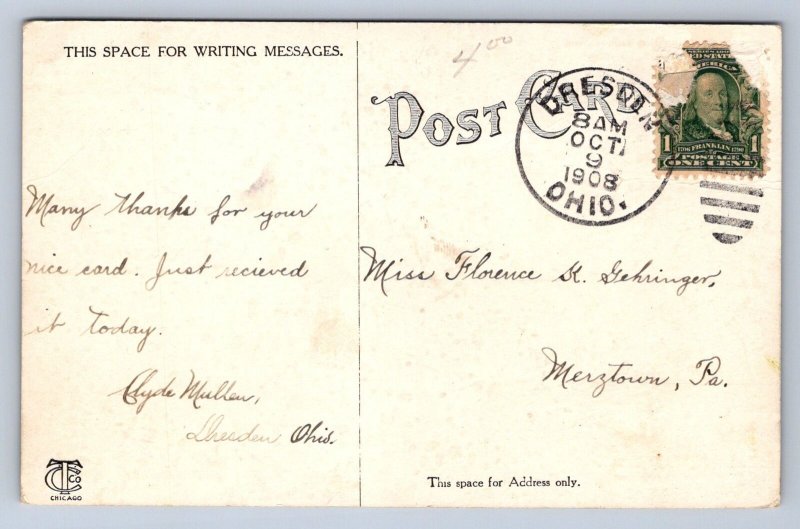 THIS SPACE FOR WRITING MESSAGES.
4.00
POST CARD
DRESDEN
8 AM
OCT
9
1908
OHIO.
1
1706 FRANKLIN 1790
POSTAGE
ONE CENT
Many thanks for your
nice card. Just recieved
it today.
Clyde Mullen,
Dresden Ohio.
Miss Florence K. Gehringer,
Merztown, Pa.
This space for Address only.
CTCo
CHICAGO